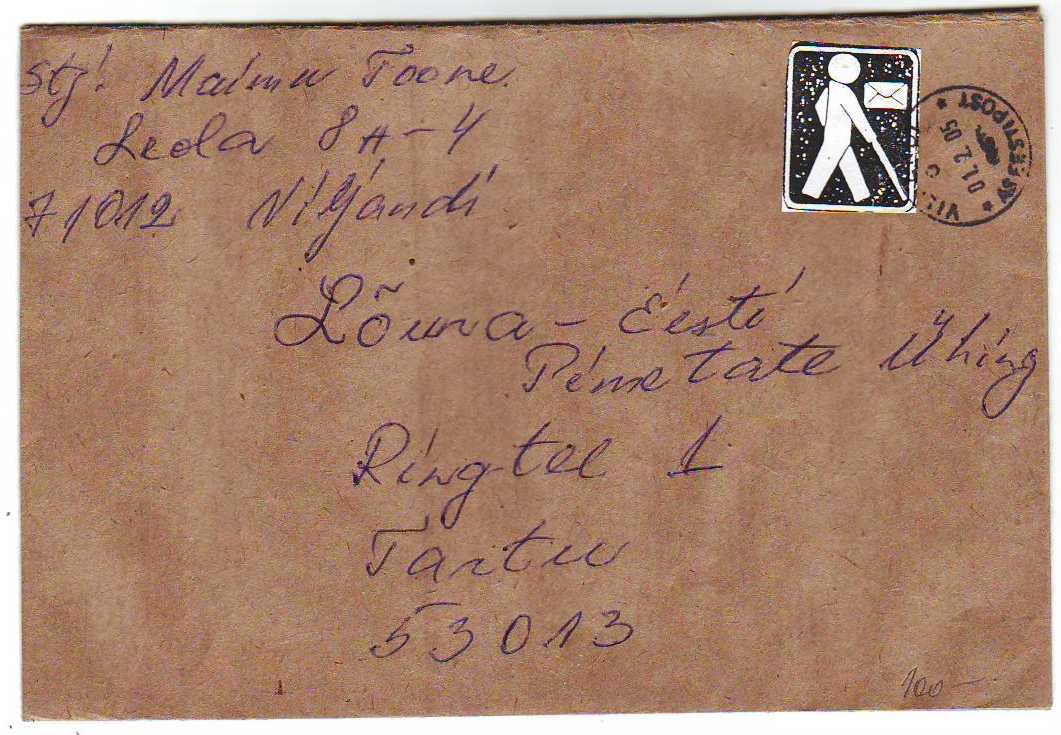 Stj. Maimu Toone
Leola 8A-4
71012 Viljandi
AS EESTI POST
01.2.05
Lõuna-Eesti
Pimetate Ühing
Ringtee 1
Tartu
53013
100-